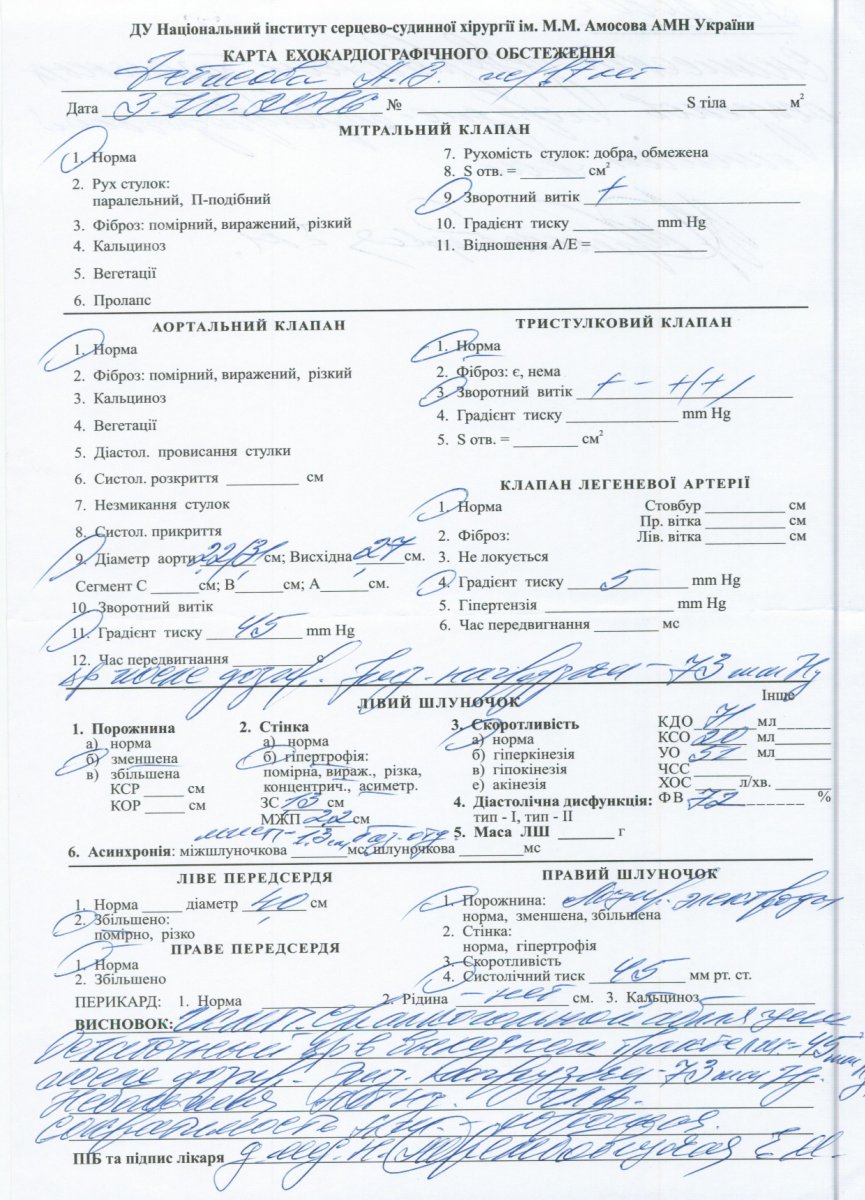 ДУ Національний інститут серцево-судинної хірургії ім. М.М. Амосова АМН України
КАРТА ЕХОКАРДІОГРАФІЧНОГО ОБСТЕЖЕННЯ
А.В. 17 лет
Дата 3.10.2016 № S тіла м²
МІТРАЛЬНИЙ КЛАПАН
1. Норма
2. Рух стулок:
паралельний, П-подібний
3. Фіброз: помірний, виражений, різкий
4. Кальциноз
5. Вегетації
6. Пролапс
7. Рухомість стулок: добра, обмежена
8. S отв. = см²
9. Зворотний витік +
10. Градієнт тиску mm Hg
11. Відношення А/Е =
АОРТАЛЬНИЙ КЛАПАН
1. Норма
2. Фіброз: помірний, виражений, різкий
3. Кальциноз
4. Вегетації
5. Діастол. провисання стулки
6. Систол. розкриття см
7. Незмикання стулок
8. Систол. прикриття
9. Діаметр аорти 22/31 см; Висхідна 27 см.
Сегмент С см; В см; А см.
10. Зворотний витік
11. Градієнт тиску 45 mm Hg
12. Час передвигнання с
ТРИСТУЛКОВИЙ КЛАПАН
1. Норма
2. Фіброз: є, нема
3. Зворотний витік + - +(+)
4. Градієнт тиску mm Hg
5. S отв. = см²
КЛАПАН ЛЕГЕНЕВОЇ АРТЕРІЇ
1. Норма Стовбур см
Пр. вітка см
2. Фіброз: Лів. вітка см
3. Не локується
4. Градієнт тиску 5 mm Hg
5. Гіпертензія mm Hg
6. Час передвигнання мс
после дозир. физ. нагрузки - 73 mm Hg
ЛІВИЙ ШЛУНОЧОК
1. Порожнина
а) норма
б) зменшена
в) збільшена
КСР см
КОР см
2. Стінка
а) норма
б) гіпертрофія:
помірна, вираж., різка,
концентрич., асиметр.
ЗС 13 см
МЖП 22 см
1.3 см баз. отд.
3. Скоротливість
а) норма
б) гіперкінезія
в) гіпокінезія
е) акінезія
4. Діастолічна дисфункція:
тип - I, тип - II
5. Маса ЛШ г
Інше
КДО 71 мл
КСО 20 мл
УО 51 мл
ЧСС
ХОС л/хв.
ФВ 72 %
6. Асинхронія: міжшлуночкова мс; шлуночкова мс
ЛІВЕ ПЕРЕДСЕРДЯ
1. Норма діаметр 40 см
2. Збільшено:
помірно, різко
ПРАВЕ ПЕРЕДСЕРДЯ
1. Норма
2. Збільшено
ПРАВИЙ ШЛУНОЧОК
1. Порожнина: электроды
норма, зменшена, збільшена
2. Стінка:
норма, гіпертрофія
3. Скоротливість
4. Систолічний тиск 45 мм рт. ст.
ПЕРИКАРД: 1. Норма 2. Рідина - нет см. 3. Кальциноз
ВИСНОВОК:
Остаточный в выходном - 45 mm Hg
после дозир. физ. нагрузки - 73 mm Hg.
Небольшая
сократимость хорошая.
ПІБ та підпис лікаря д.мед.н.